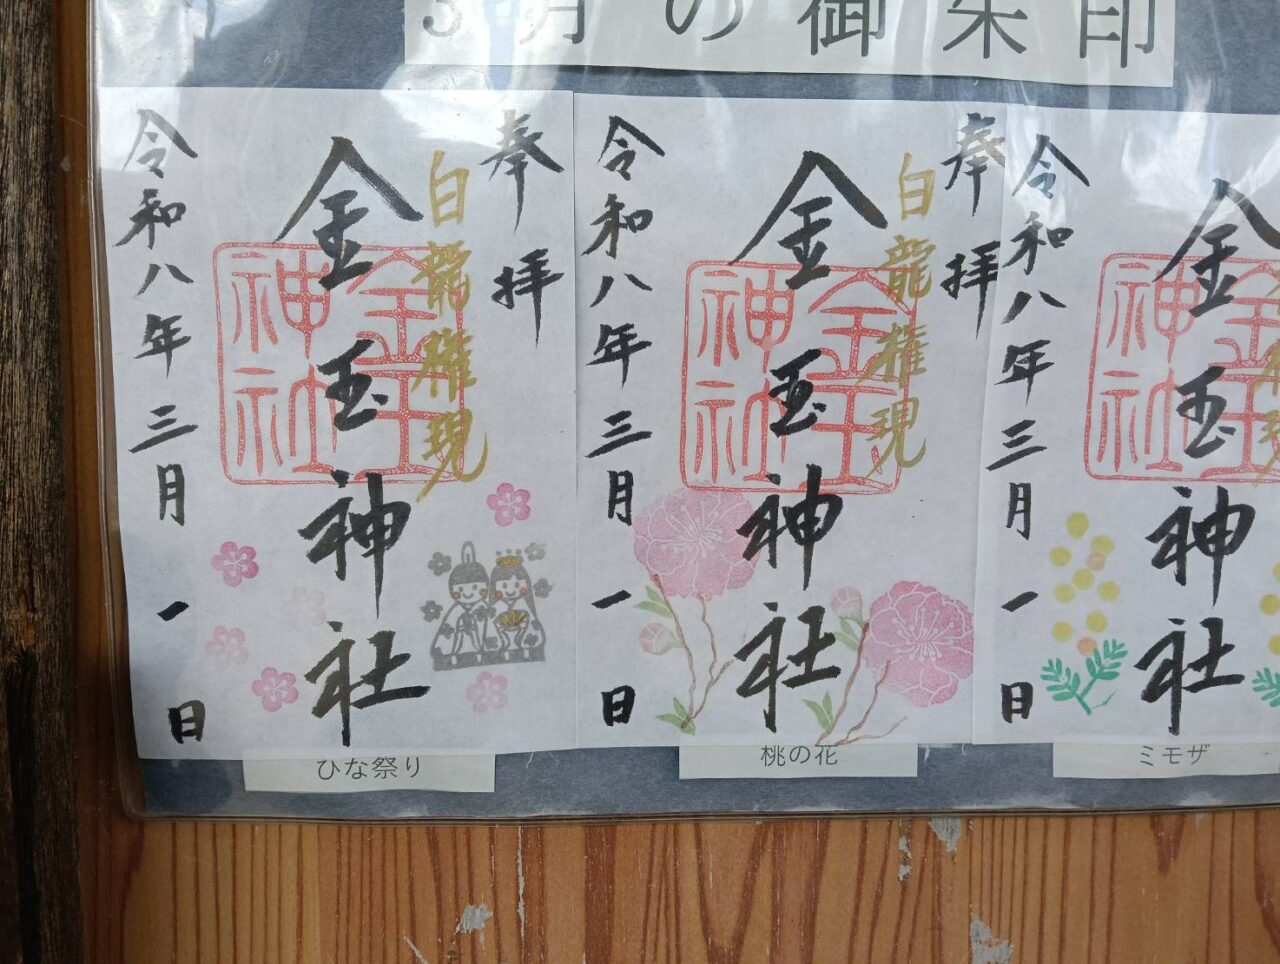 3月の御朱印
奉拝
白龍権現
金玉神社
金玉神社
令和八年三月一日
ひな祭り
奉拝
白龍権現
金玉神社
金玉神社
令和八年三月一日
桃の花
金玉神社
令和八年三月一日
ミモザ